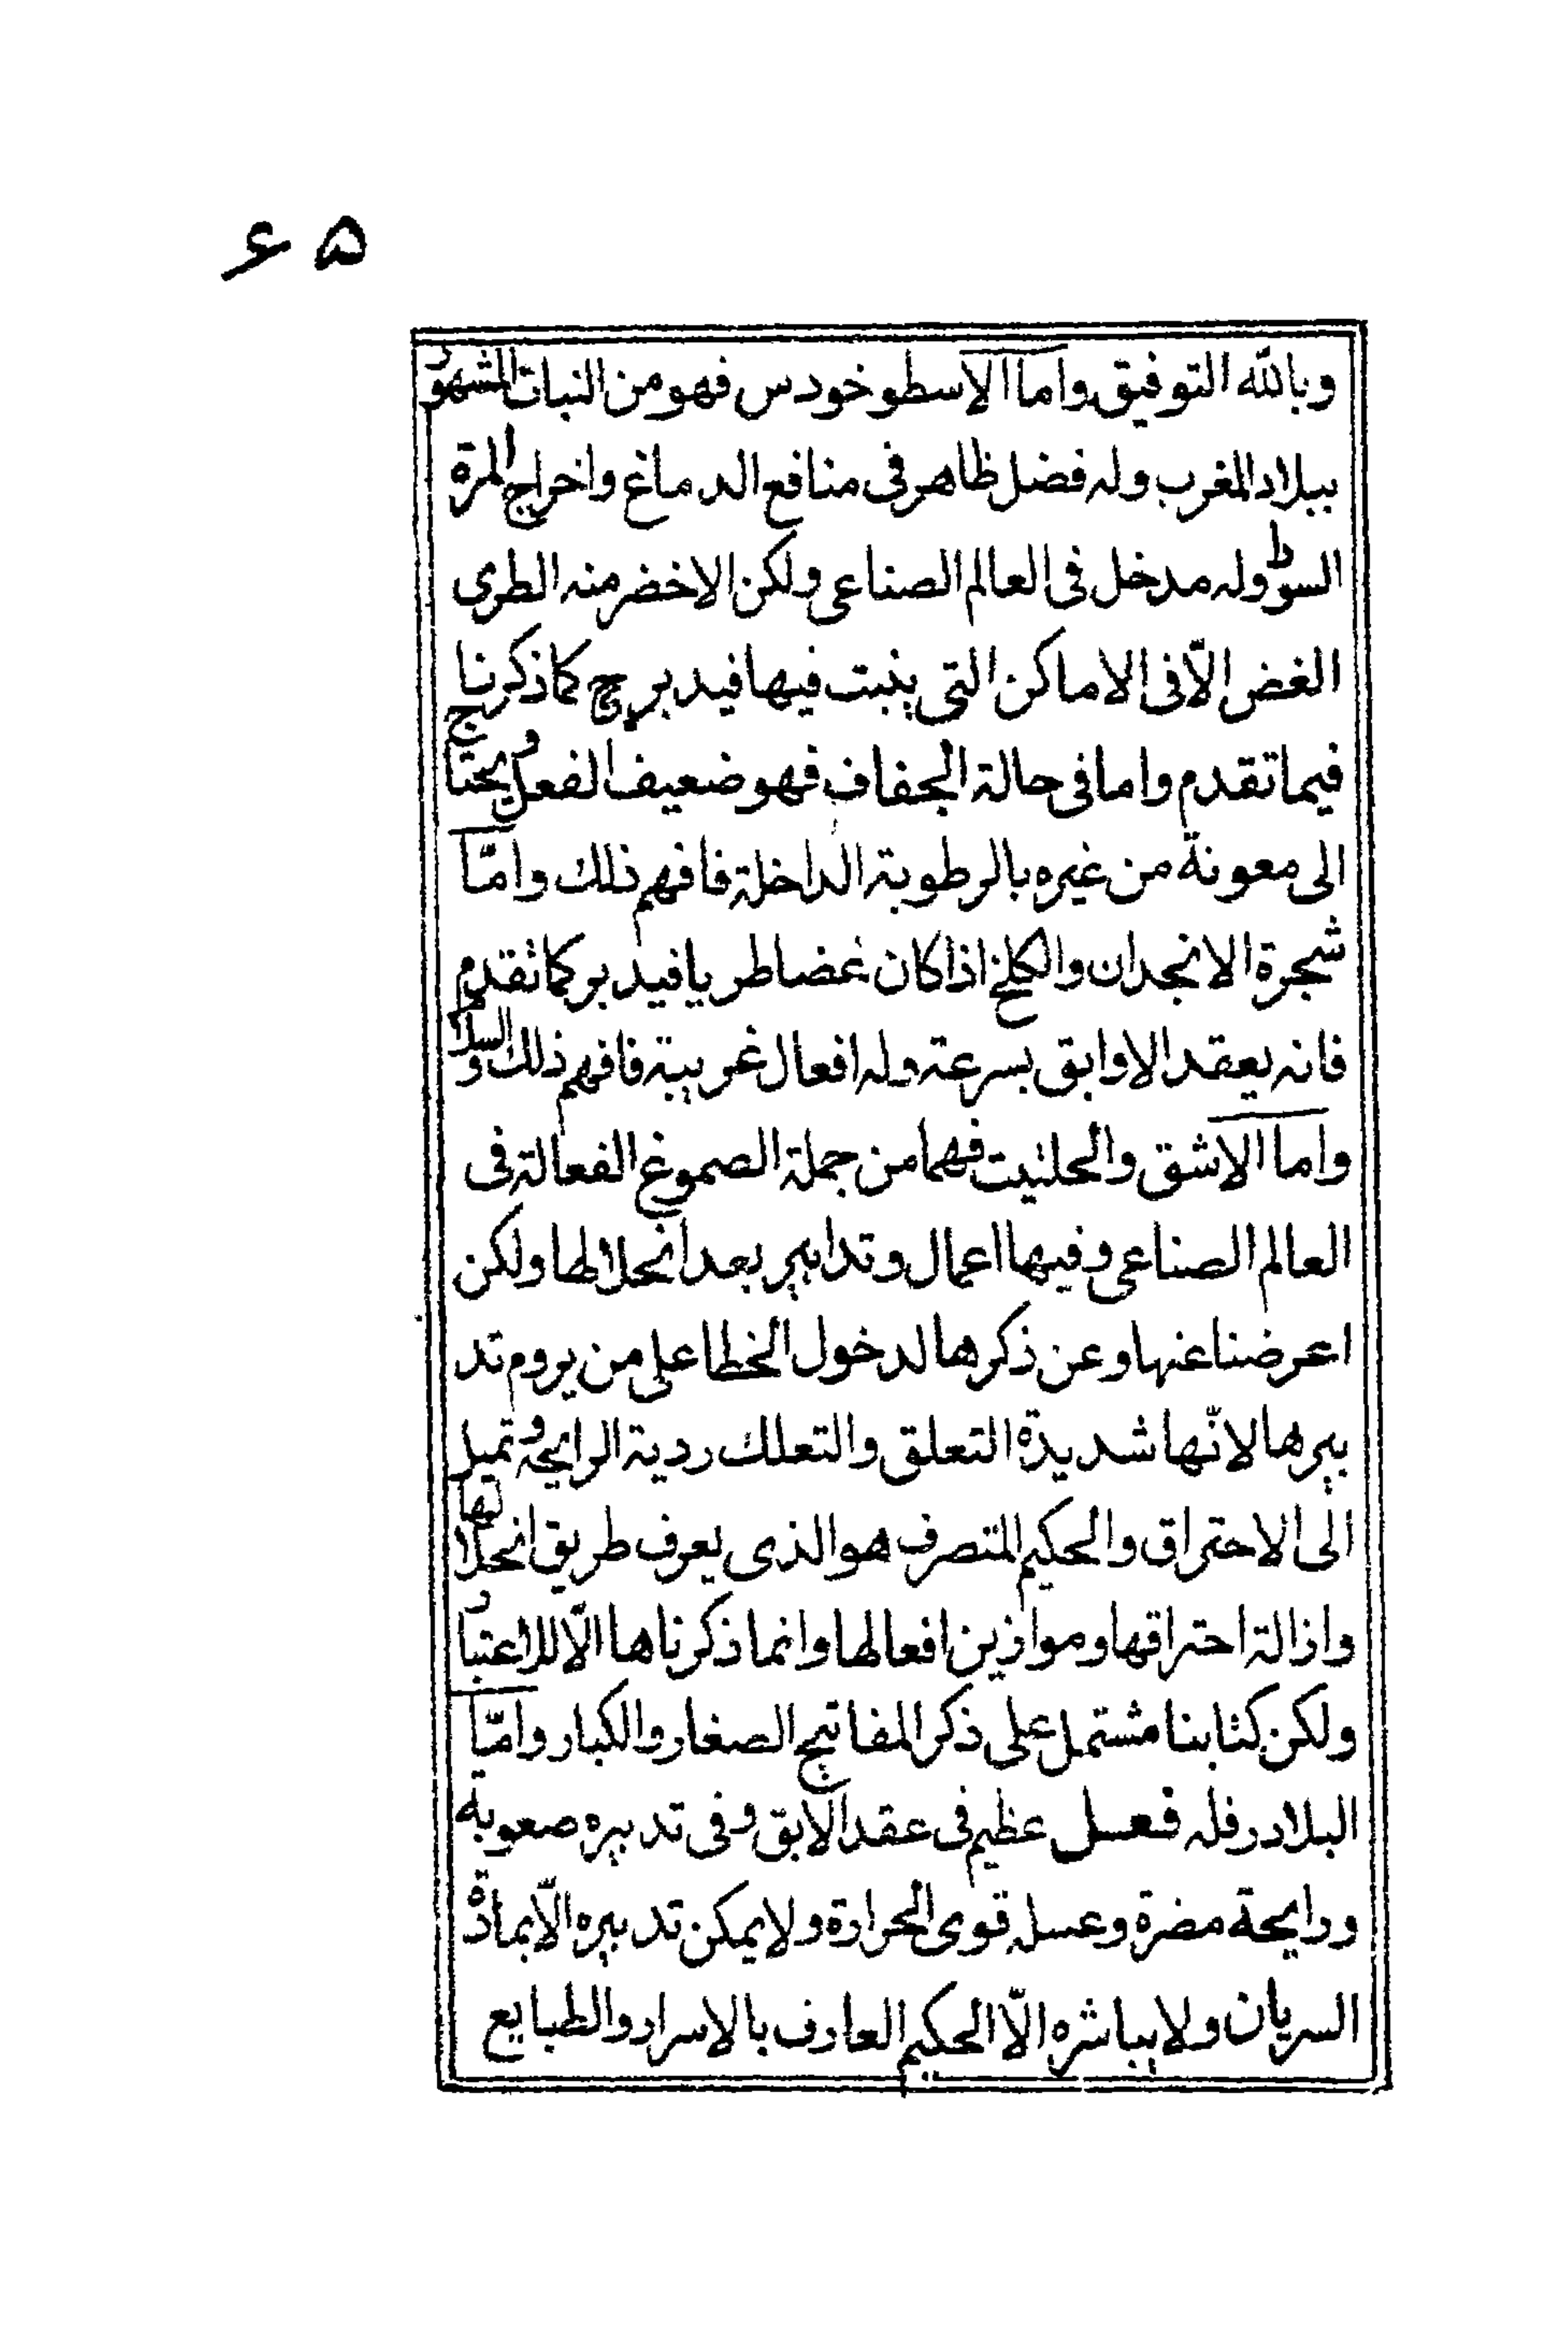 ۵۶
وبالله التوفيق واما الاسطوخودس فهو من النبات المشهور
ببلاد المغرب وله فضل ظاهر فى منافع الدماغ واخراج المرة
السودا وله مدخل فى العالم الصناعى ولكن الاخضر منه الطرى
الغض الّا فى الاماكن التى ينبت فيها فيدبر ح كما ذكرنا
فيما تقدم واما فى حالة الجفاف فهو ضعيف الفعل ويحتاج
الى معونة من غيره بالرطوبة الداخلة فافهم ذلك وامّا
شجرة الانجدان والكلخ اذا كان غضا طريا فيدبر كما تقدم
فانه يعقد الاوابق بسرعة وله افعال غريبة فافهم ذلك والسلام
واما الاشق والحلتيت فهما من جملة الصموغ الفعالة فى
العالم الصناعى وفيها اعمال وتدابير بعد انحلالها ولكن
اعرضنا عنها وعن ذكرها لدخول الخطا على من يروم تد
بيرها لانّها شديدة التعلق والتعلك ردية الرايحة وتميل
الى الاحتراق والحكيم المتصرف هو الذى يعرف طريق انحلالها
وازالة احتراقها وموازين افعالها وانما ذكرناها الّا للاعتبار
ولكن كتابنا مشتمل على ذكر المفاتيح الصغار والكبار وامّا
البلادر فله فعسل عظيم فى عقد الابق وفى تدبيره صعوبة
ورايحة مضرة وعسله قوى الحرارة ولا يمكن تدبيره الّا بمادة
السريان ولا يباشره الّا الحكيم العارف بالاسرار والطبايع